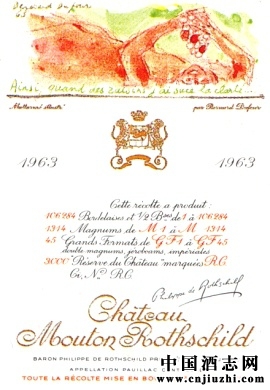 Bernard Dufour
63
Ainsi quand des raisins j'ai sucé la clarté...
Mallarmé
par Bernard Dufour
1963
1963
Cette récolte a produit :
106284 Bordelaises et 1/2 Bses de 1 à 106284
1314 Magnums de M 1 à M 1314
45 Grands Formats de GF1 à GF45
double magnums, jéroboams, impériales
3000 "Réserve du Château" marquées R.C.
Ci, N.º R.C.
Philippe de Rothschild
Château
Mouton Rothschild
BARON PHILIPPE DE ROTHSCHILD
APPELLATION PAUILLAC
TOUTE LA RÉCOLTE MISE EN
中国酒志网
www.cnjiuzhi.com